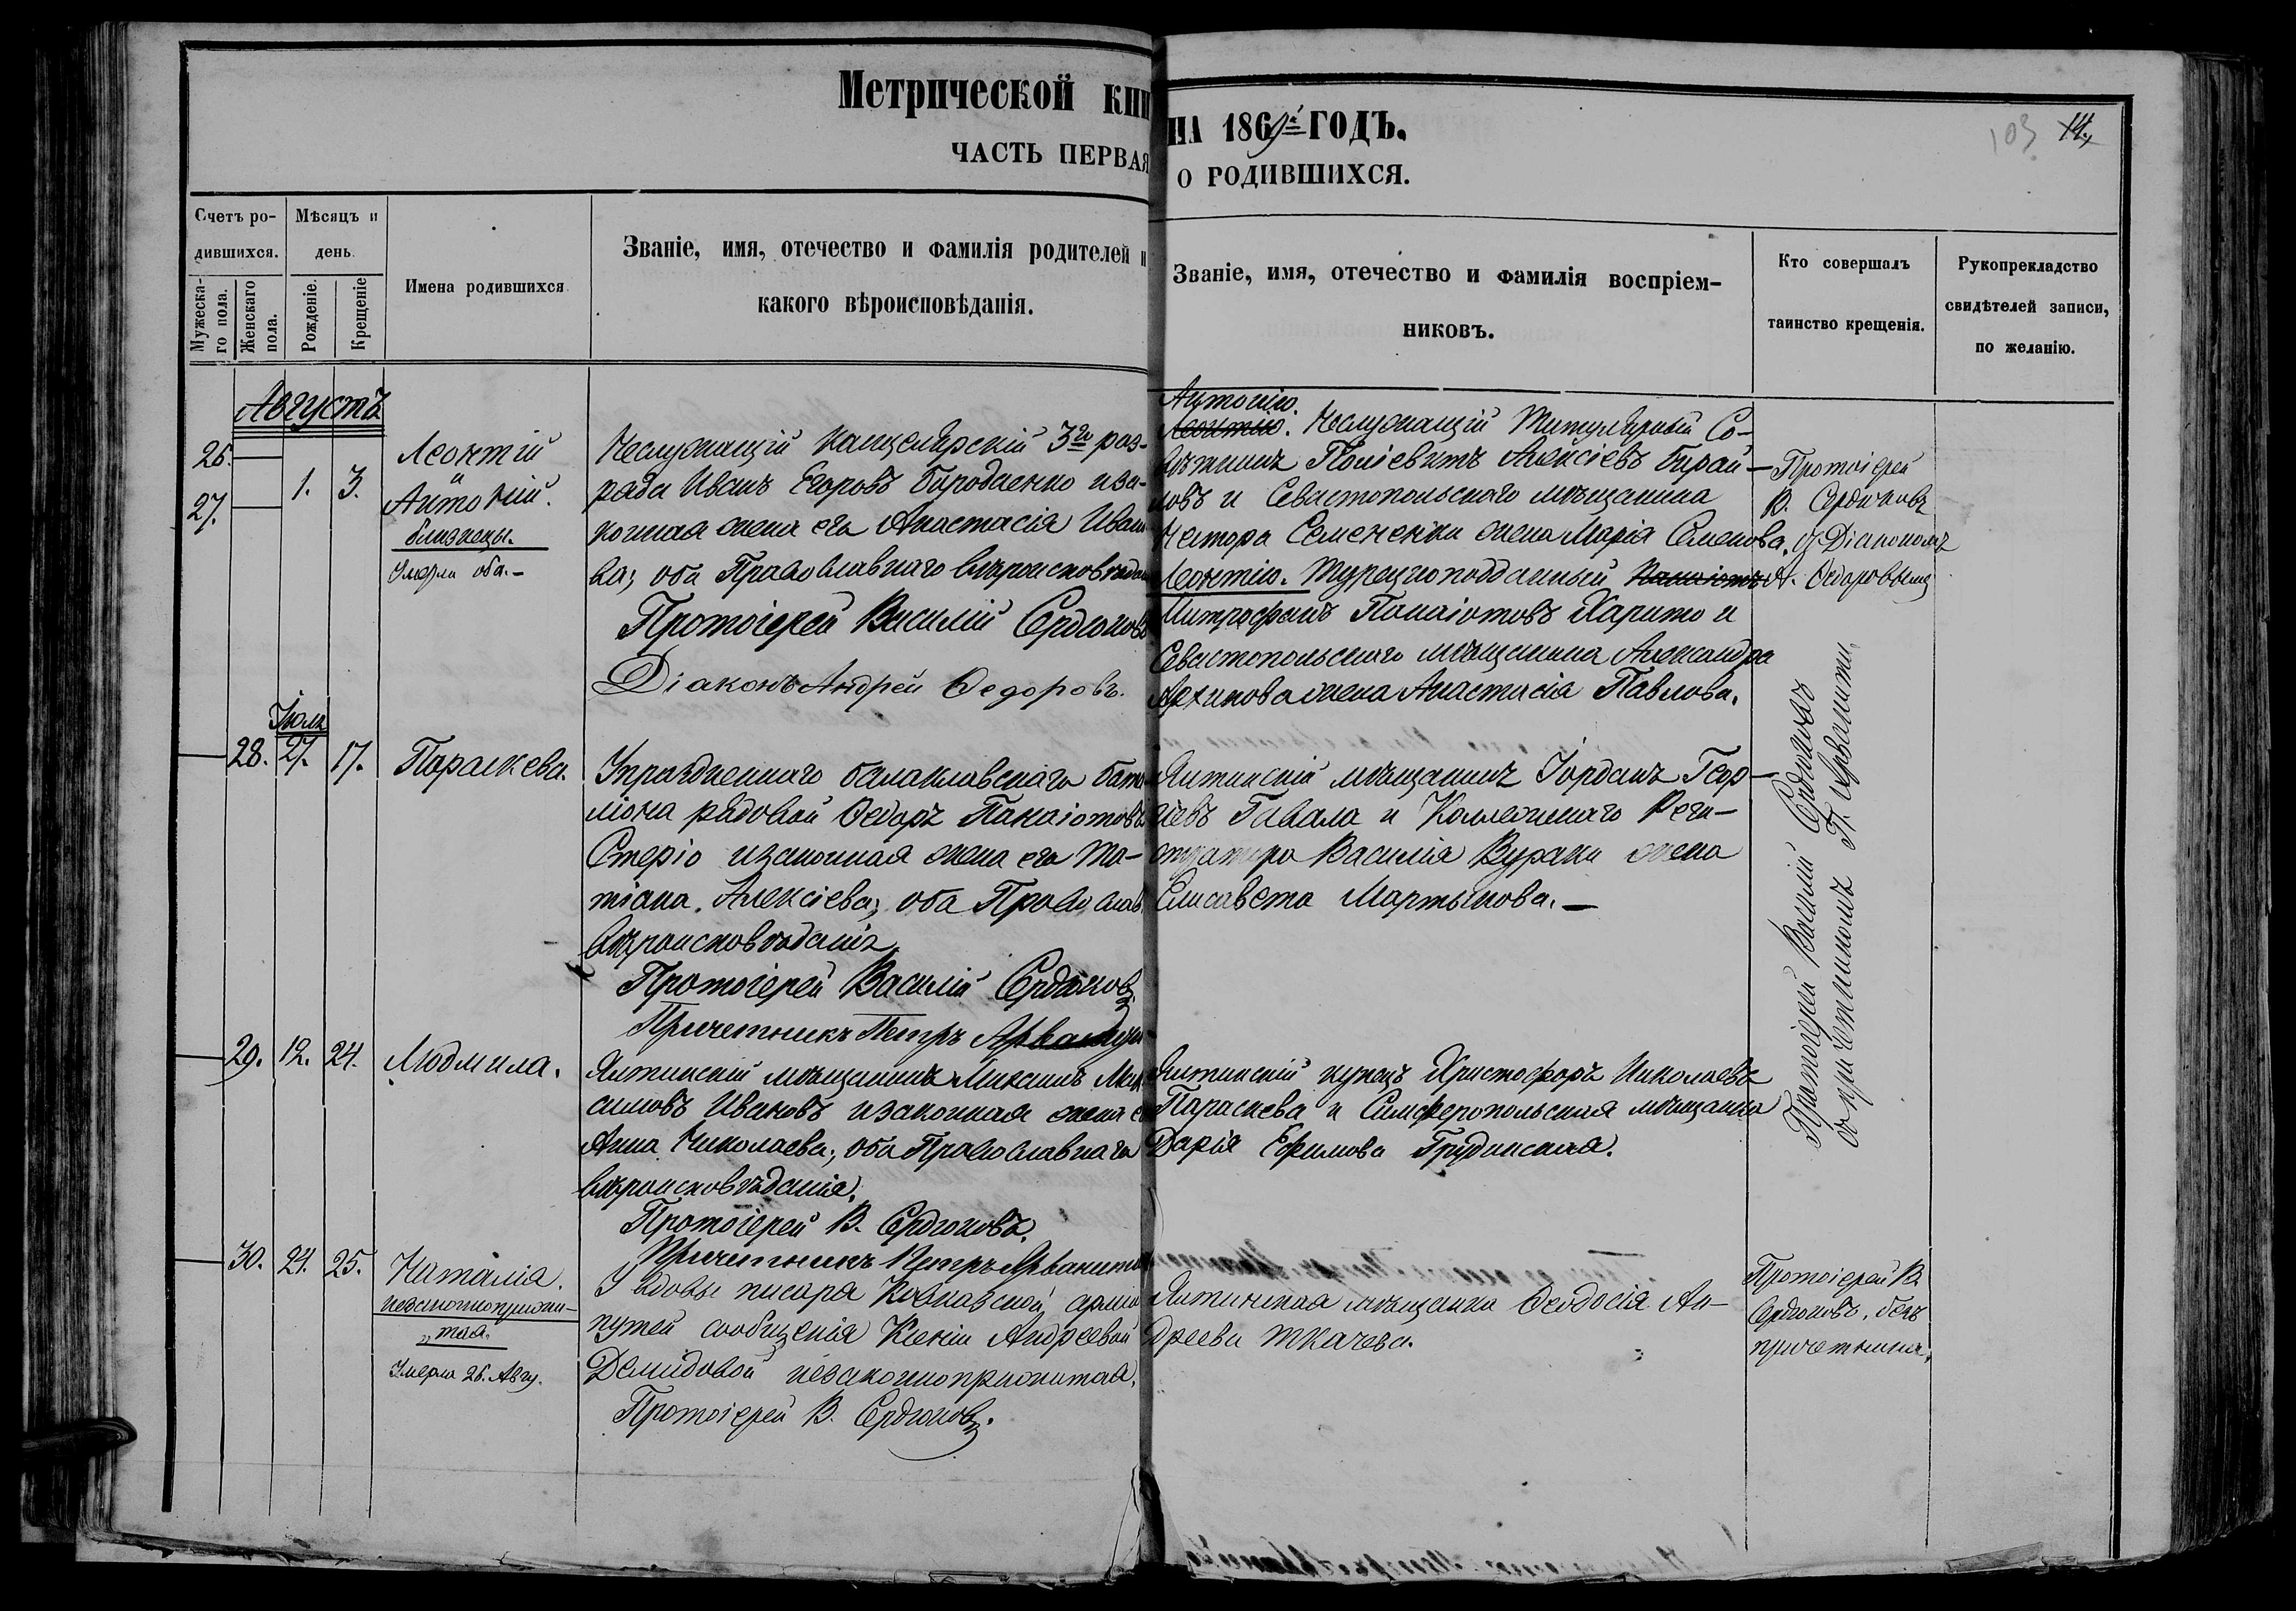 Метрической кни
ЧАСТЬ ПЕРВАЯ
НА 1869й ГОДЪ.
О РОДИВШИХСЯ.
103 14
Счетъ ро-
дившихся.
Мужеска-
го пола.
Женскаго
пола.
Мѣсяцъ и
день.
Рожденіе.
Крещеніе
Имена родившихся
Званіе, имя, отечество и фамилія родителей и
какого вѣроисповѣданія.
Званіе, имя, отечество и фамилія воспріем-
никовъ.
Кто совершалъ
таинство крещенія.
Рукоприкладство
свидѣтелей записи,
по желанію.
Августъ
26.
27.
1. 3.
Леонтій
и
Антоній.
близнецы.
Умерли оба.
Неслужащій канцелярскій 3го раз-
ряда Иванъ Егоровъ Бородаенко и за-
конная жена его Анастасія Ивано
ва; оба Православнаго вѣроисповѣдан
Протоіерей Василій Сердюковъ
Діаконъ Андрей Ѳедоровъ.
Антонію.
Леонтію. Неслужащій Титулярный Со-
вѣтникъ Алексіевъ
новъ и Севастопольскаго мѣщанина
Нестора Семененки жена Марія Семенова.
Леонтію. Турецкоподданный Панаіотъ
Митрофанъ Панаіотовъ Харито и
Севастопольскаго мѣщанина Александра
Архипова жена Анастасія Павлова.
Протоіерей
В. Сердюковъ
съ Діакономъ
А. Ѳедоровымъ
Іюля
28. 27. 17.
Параскева.
Упраздненнаго балаклавскаго бата
ліона рядовой Ѳедоръ Панаіотовъ
Стеріо и законная жена его Та-
тіана Алексіева; оба Православ
вѣроисповѣданія.
Протоіерей Василій Сердюковъ
Причетникъ Петръ
Ялтинскій мѣщанинъ Іорданъ Геор-
гіевъ Гавала и Коллежскаго Реги-
стратора Василія Вураки жена
Елисавета Мартынова.
Протоіерей Василій Сердюковъ
съ причетникомъ П. Арванити.
29. 12. 24.
Людмила.
Ялтинскій мѣщанинъ Михаилъ Мак
симовъ Ивановъ и законная жена е
Анна Николаева; оба Православнаго
вѣроисповѣданія.
Протоіерей В. Сердюковъ.
Причетникъ Петръ Арванити
Ялтинскій купецъ Христофоръ Николаевъ
Параскева и Симферопольская мѣщанка
Дарія Ефимова Грудинская.
30. 24. 25.
Наталія.
незаконноприжи-
тая.
Умерла 26. Авгу.
У вдовы писаря Ковкавской
путей сообщенія Ксеніи Андреевой
Демидовой незаконноприжитая.
Протоіерей В. Сердюковъ.
Ялтинская мѣщанка Ѳеодосія Ан-
дреева Ткачева.
Протоіерей В.
Сердюковъ, безъ
причетника.